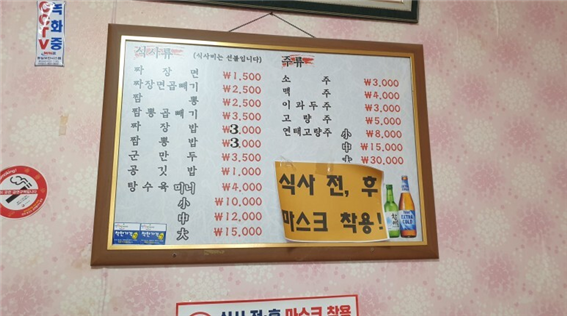 녹화중
CCTV
식사류 (식사비는 선불입니다)
짜장면 ₩1,500
짜장면곱빼기 ₩2,500
짬뽕 ₩2,500
짬뽕곱빼기 ₩3,500
짜장밥 ₩3,000
짬뽕밥 ₩3,000
군만두 ₩3,500
공깃밥 ₩1,000
탕수육 미니 ₩4,000
小 ₩10,000
中 ₩12,000
大 ₩15,000
주류
소주 ₩3,000
맥주 ₩4,000
이과두주 ₩3,000
고량주 ₩5,000
연태고량주 小 ₩8,000
中 ₩15,000
大 ₩30,000
식사 전, 후
마스크 착용!
식사 전·후 마스크 착용